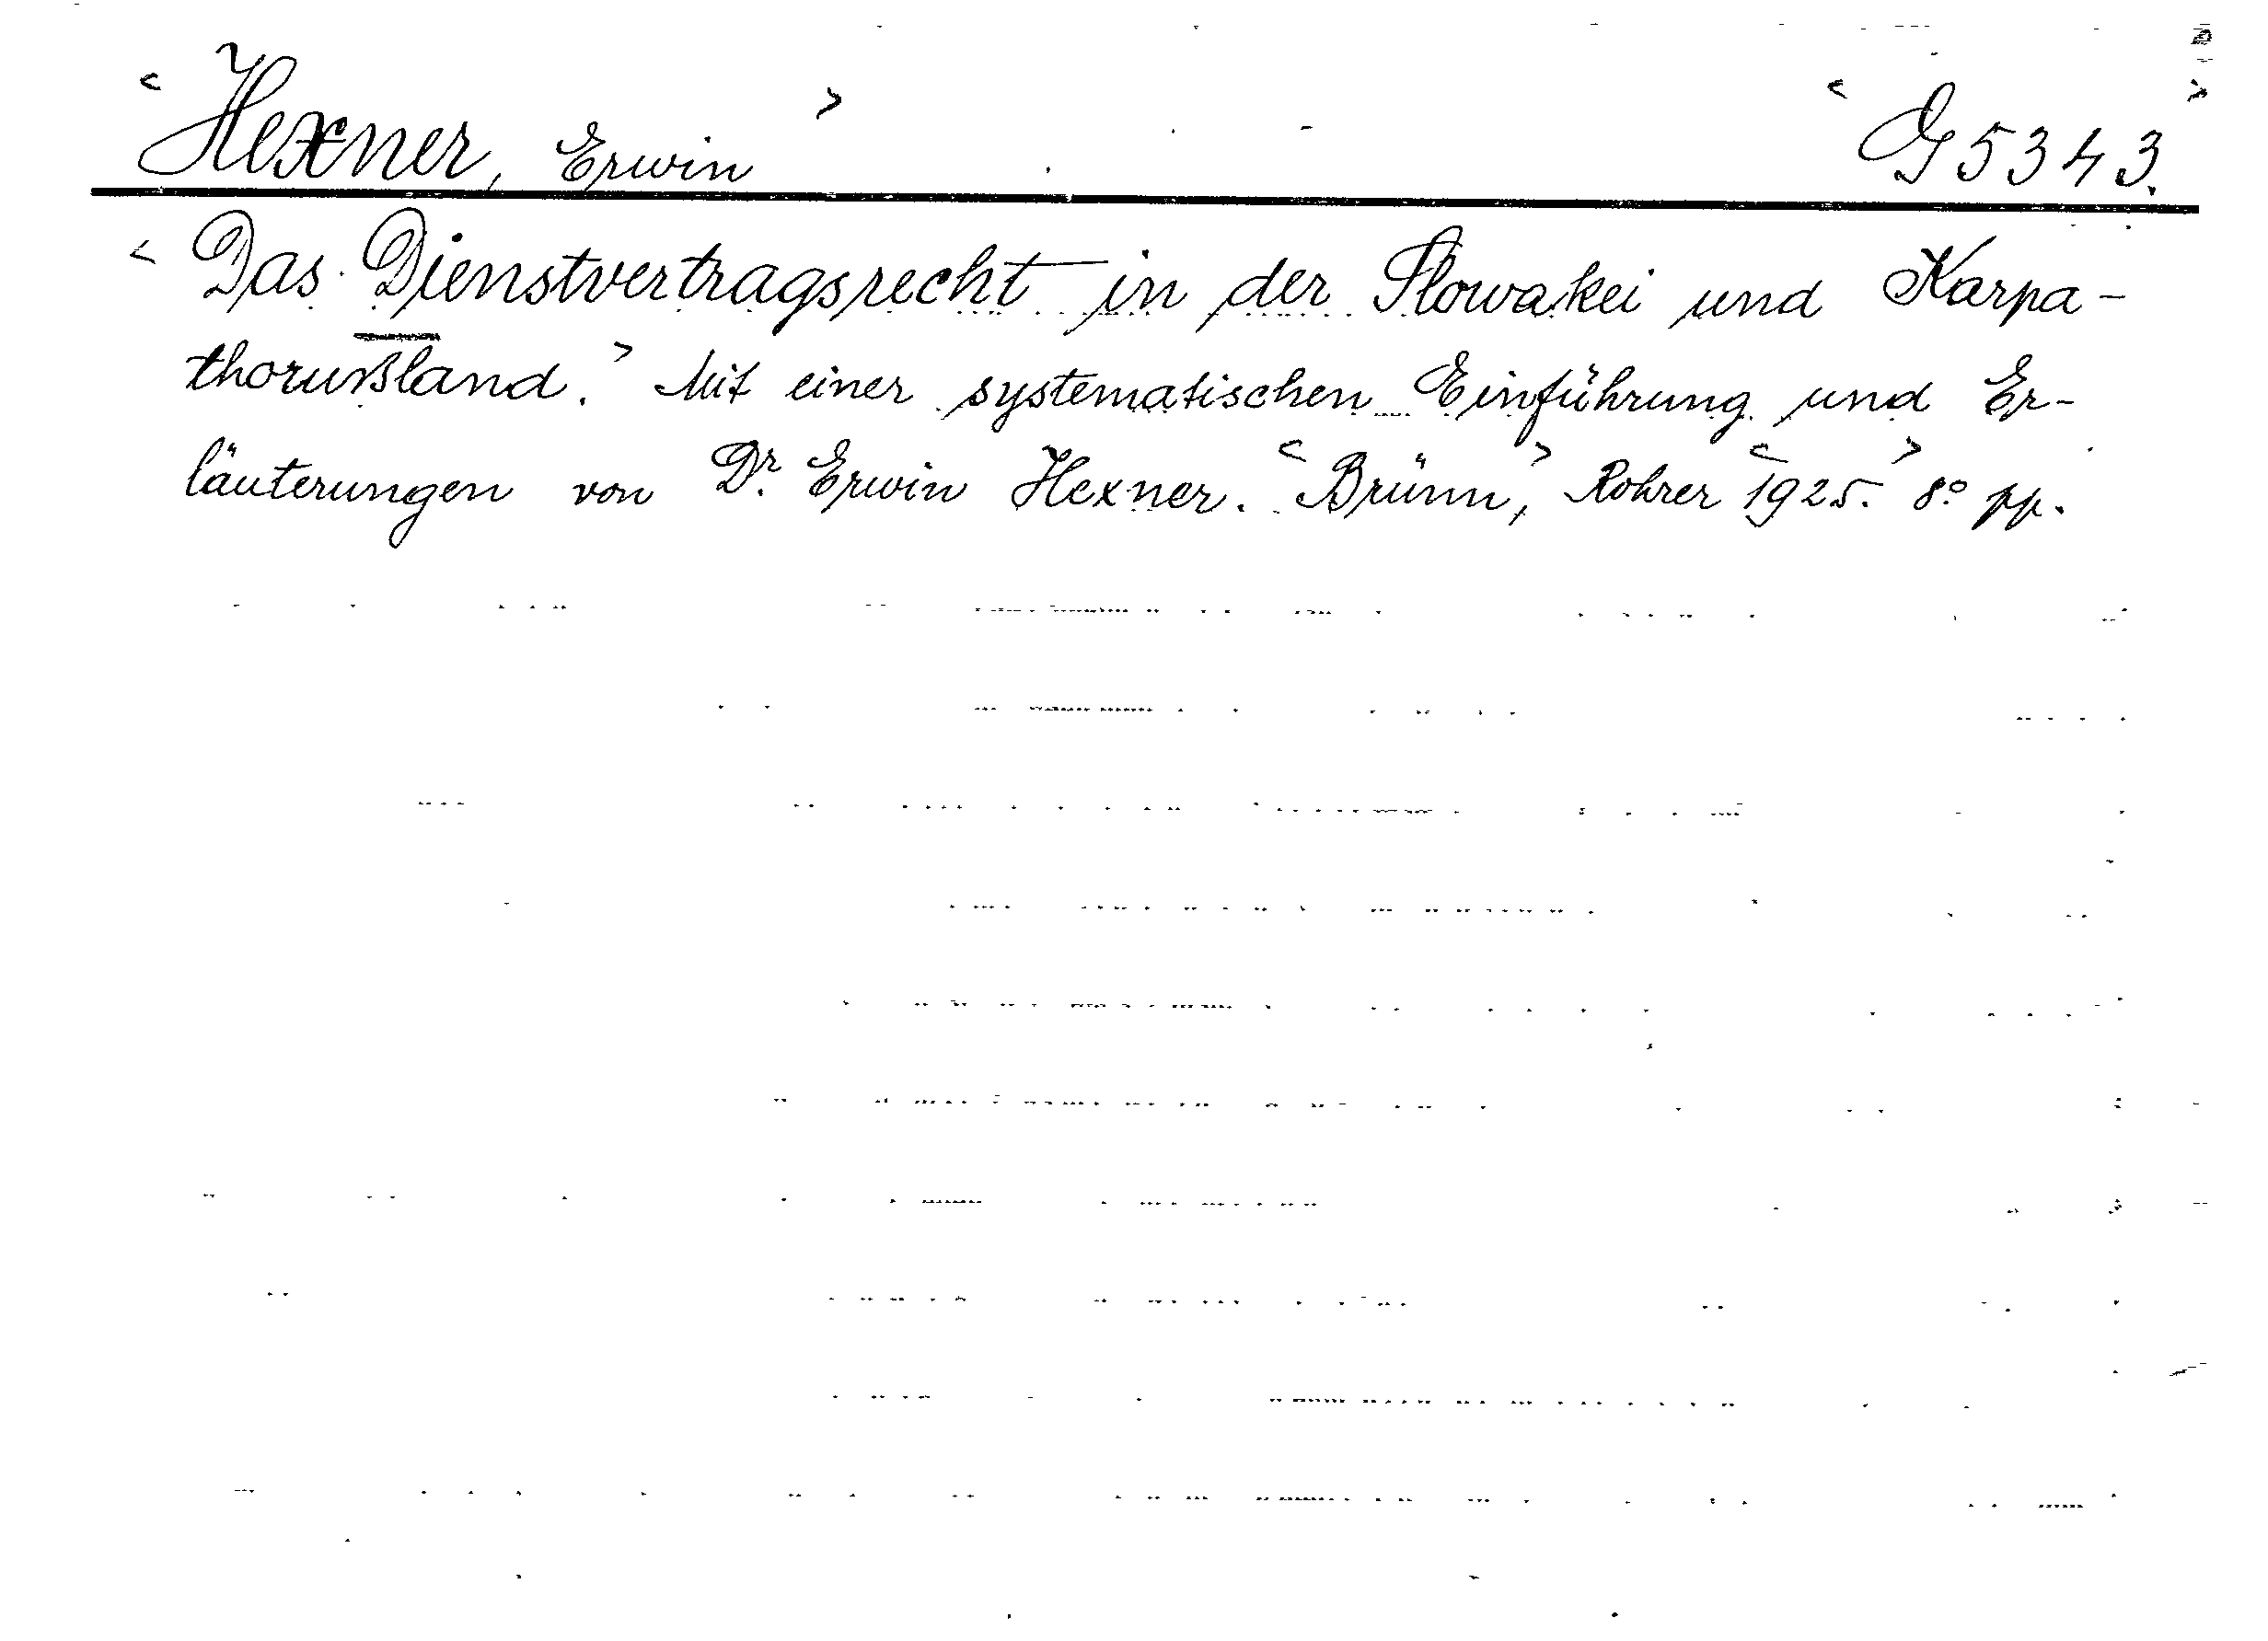 < Hexner, Erwin > < G 5343. >
< Das Dienstvertragsrecht in der Slowakei und Karpa-
thorußland. > Mit einer systematischen Einführung und Er-
läuterungen von Dr. Erwin Hexner. < Brünn, > Rohrer < 1925. > 8° pp.